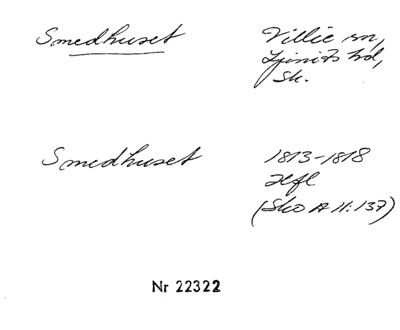 Smedhuset Villie sn,
Ljunits hd,
Sk.
Smedhuset 1813-1818
Hfl
(Sko A II:137)
Nr 22322